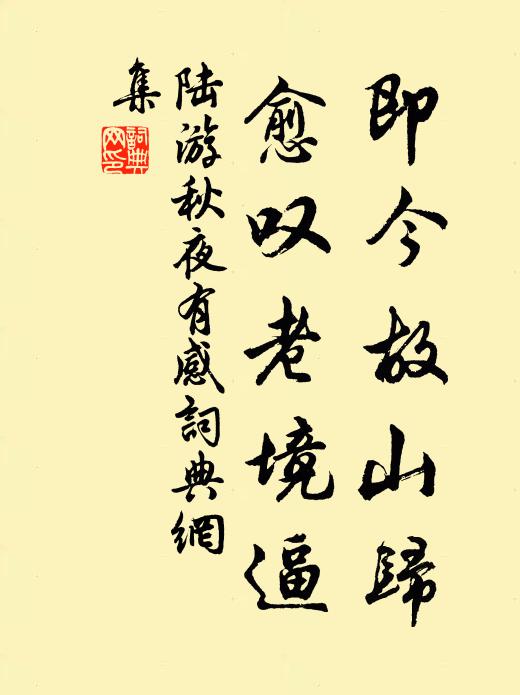 即今故山歸
愈叹老境逼
陆游秋夜有感詞典網
集
詞典
网印